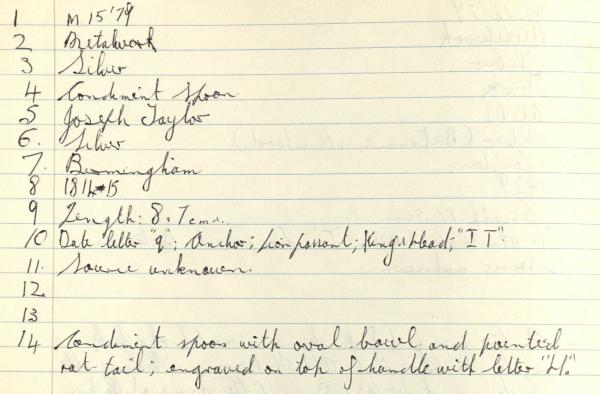 1 M 15'79
2 Metalwork
3 Silver
4 Condiment spoon
5 Joseph Taylor
6. Silver
7. Birmingham
8 1814-15
9 Length: 8.7 cms.
10 Date letter "q"; Anchor; Lion passant; King's Head; "I T".
11. Source unknown.
12
13
14 Condiment spoon with oval bowl and pointed
rat-tail; engraved on top of handle with letter "H".